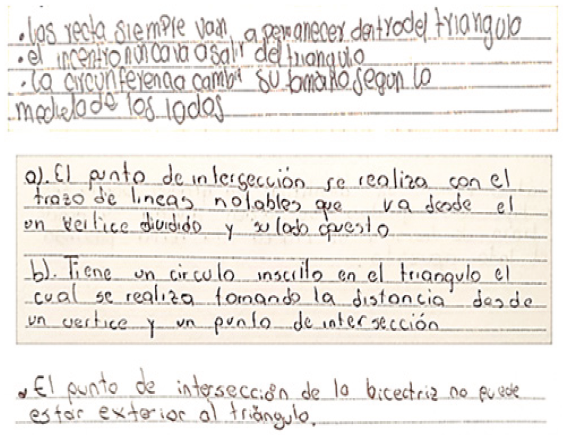 .las recta siempre van a permanecer dentro del triangulo
.el incentro nunca va a salir del triangulo
.la circunferencia cambia su tamaño segun la
medida de los lados
a). El punto de intersección se realiza con el
trazo de lineas notables que va desde el
un vertice dividido y su lado opuesto
b). Tiene un circulo inscrito en el triangulo el
cual se realiza tomando la distancia desde
un vertice y un punto de intersección
. El punto de intersección de la bicectriz no puede
estar exterior al triángulo.